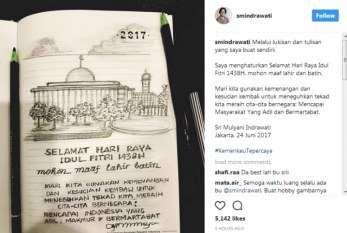 2017
SELAMAT HARI RAYA
IDUL FITRI 1438H
mohon maaf lahir batin
MARI KITA GUNAKAN KEMENANGAN
DAN KESUCIAN KEMBALI UNTUK
MENEGUHKAN TEKAD KITA MERAIH
CITA-CITA BERNEGARA:
MENCAPAI INDONESIA YANG
ADIL, MAKMUR & BERMARTABAT
smindrawati
Follow
smindrawati Melalui lukisan dan tulisan
yang saya buat sendiri.
Saya menghaturkan Selamat Hari Raya Idul
Fitri 1438H, mohon maaf lahir dan batin.
Mari kita gunakan kemenangan dan
kesucian kembali untuk meneguhkan tekad
kita meraih cita-cita bernegara: Mencapai
Masyarakat Yang Adil dan Bermartabat.
Sri Mulyani Indrawati
Jakarta, 24 Juni 2017
#KemenkeuTepercaya
load more comments
shafi.raa Da best lah bu sili
mata.air_ Semoga waktu luang selalu ada bu
@smindrawati. Buat hobby gambarnya
5,142 likes
4 HOURS AGO